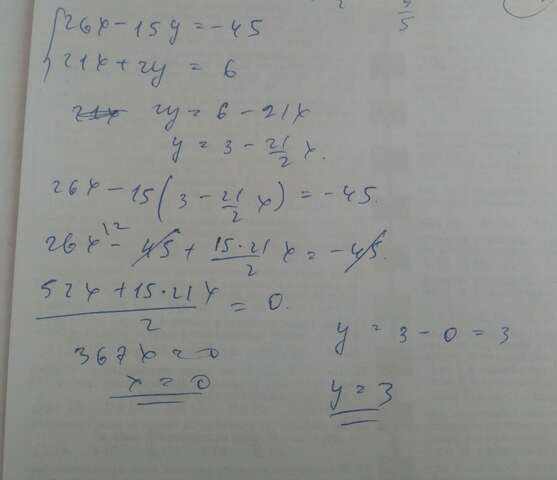 4/5
{ 26x - 15y = -45
21x + 2y = 6
2y = 6 - 21x
y = 3 - 21/2 x.
26x - 15(3 - 21/2 x) = -45.
26x /2 - 45 + 15·21/2 x = -45.
52x + 15·21x / 2 = 0.
367x = 0
x = 0
y = 3 - 0 = 3
y = 3